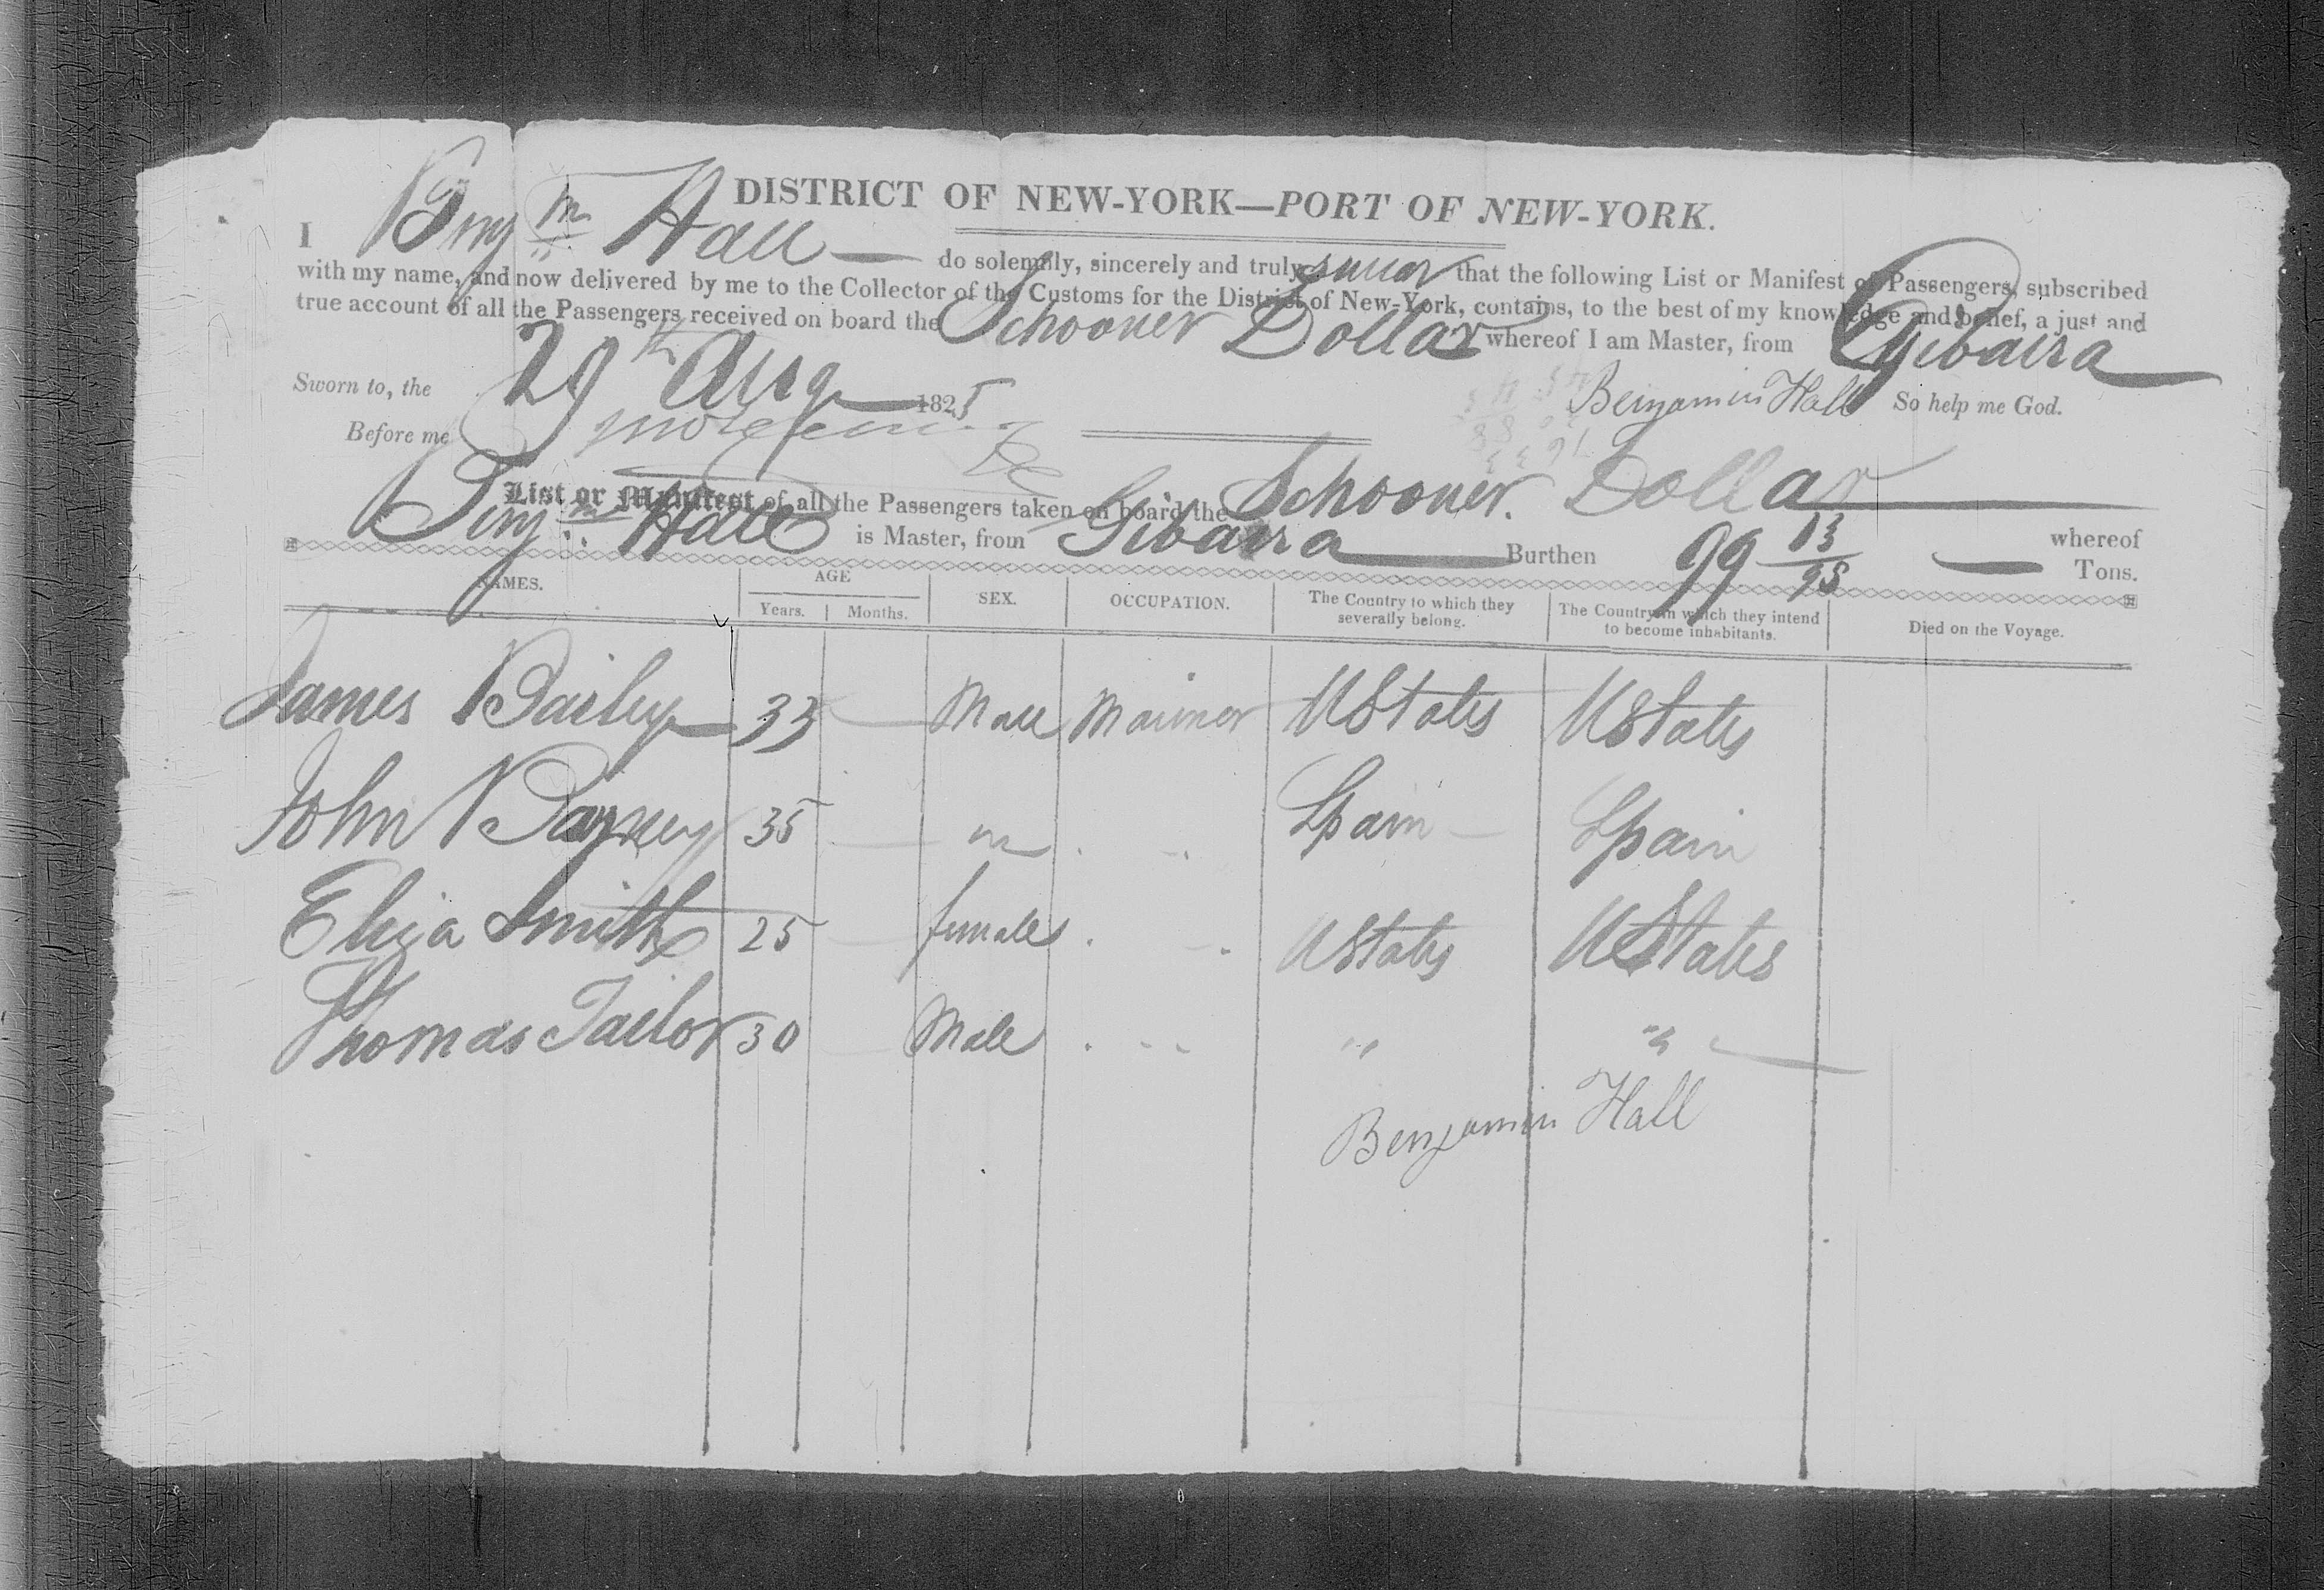 DISTRICT OF NEW-YORK—PORT OF NEW-YORK.
I Benjm Hall do solemnly, sincerely and truly swear that the following List or Manifest of Passengers, subscribed
with my name, and now delivered by me to the Collector of the Customs for the District of New-York, contains, to the best of my knowledge and belief, a just and
true account of all the Passengers received on board the Schooner Dollar whereof I am Master, from Gibaira
Sworn to, the 29th Aug 1825 Benjamin Hall So help me God.
Before me
List or Manifest of all the Passengers taken on board the Schooner Dollar whereof
Benjm Hall is Master, from Gibaira Burthen 99 13/95 Tons.
NAMES. AGE Years. Months. SEX. OCCUPATION. The Country to which they severally belong. The Country in which they intend to become inhabitants. Died on the Voyage.
James Baily 33 Male Mariner UStates UStates
John 35 m Spain Spain
Eliza Smith 25 females UStates UStates
Thomas Tailor 30 Male " "
Benjamin Hall